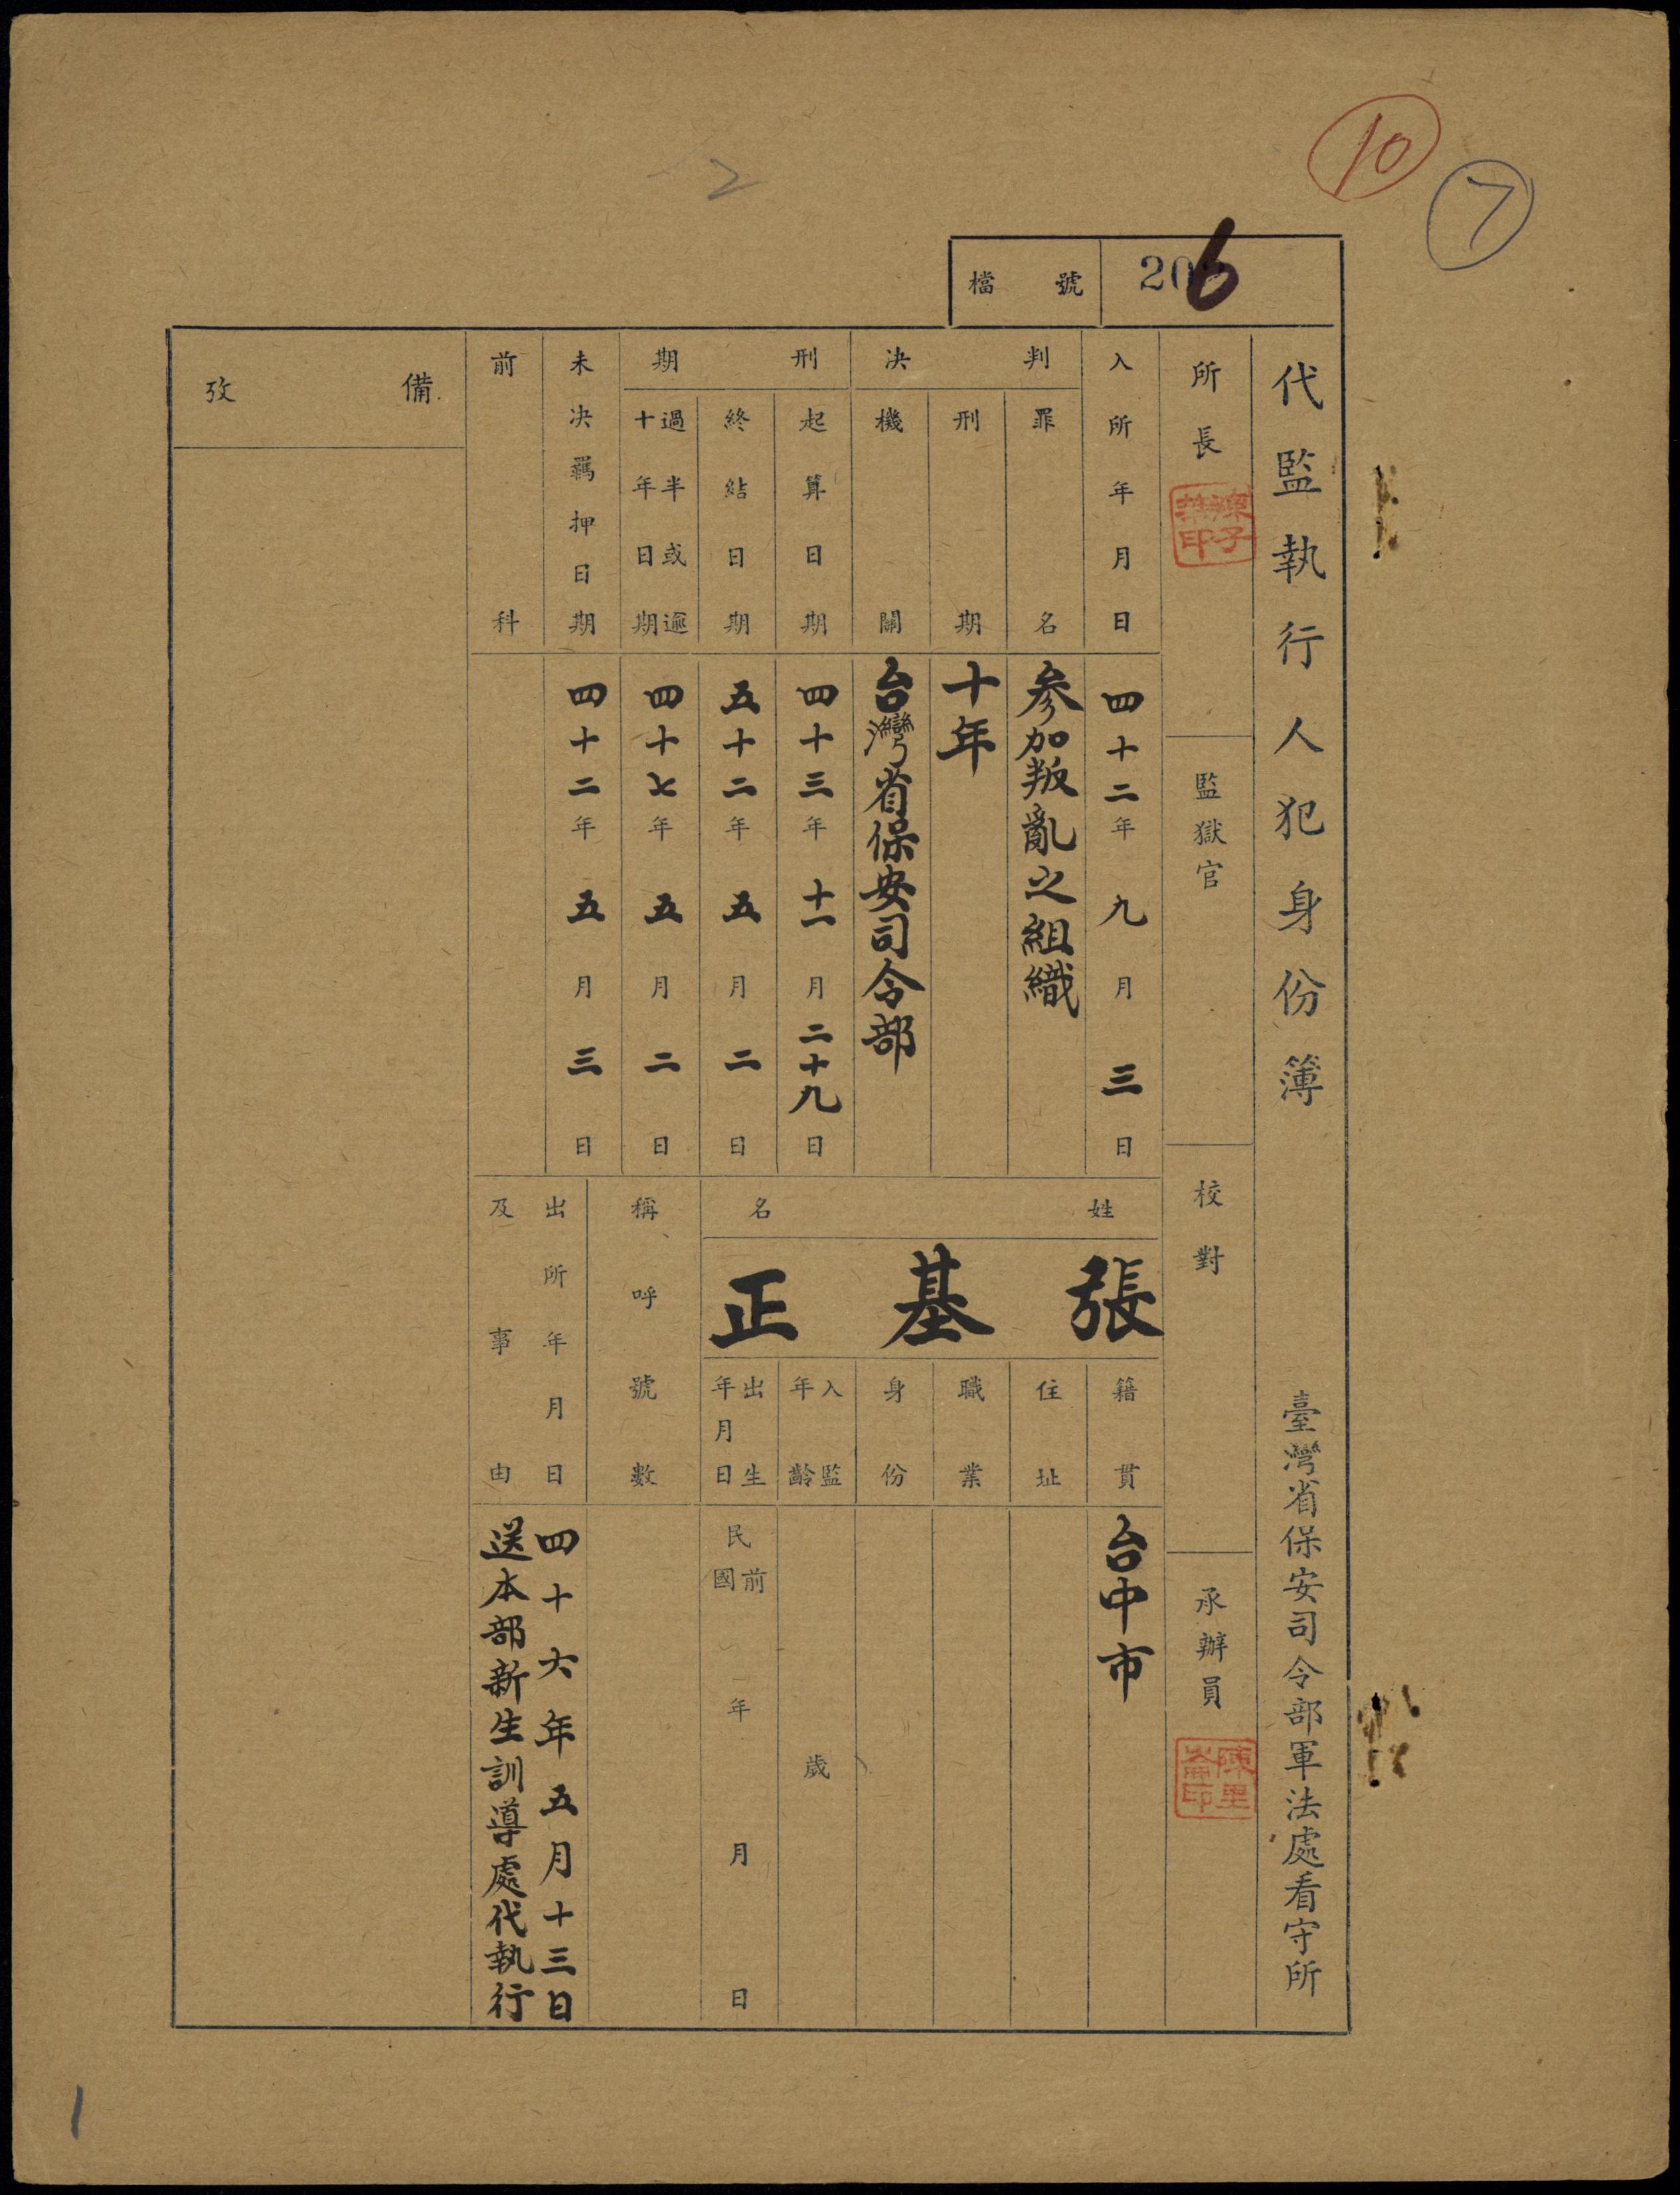 10
7
2
檔號
206
代監執行人犯身份簿
臺灣省保安司令部軍法處看守所
所長
監獄官
校對
承辦員
入所年月日
四十二年九月三日
判決
罪名
參加叛亂之組織
刑期
十年
機關
台灣省保安司令部
刑期
起算日期
四十三年十一月二十九日
終結日期
五十二年五月二日
過半或逾十年日期
四十七年五月二日
未決羈押日期
四十二年五月三日
前科
姓名
張基正
籍貫
台中市
住址
職業
身份
入監年齡
歲
出生年月日
民國前
年月日
稱呼號數
出所年月日
及事由
四十六年五月十三日
送本部新生訓導處代執行
備攷
1